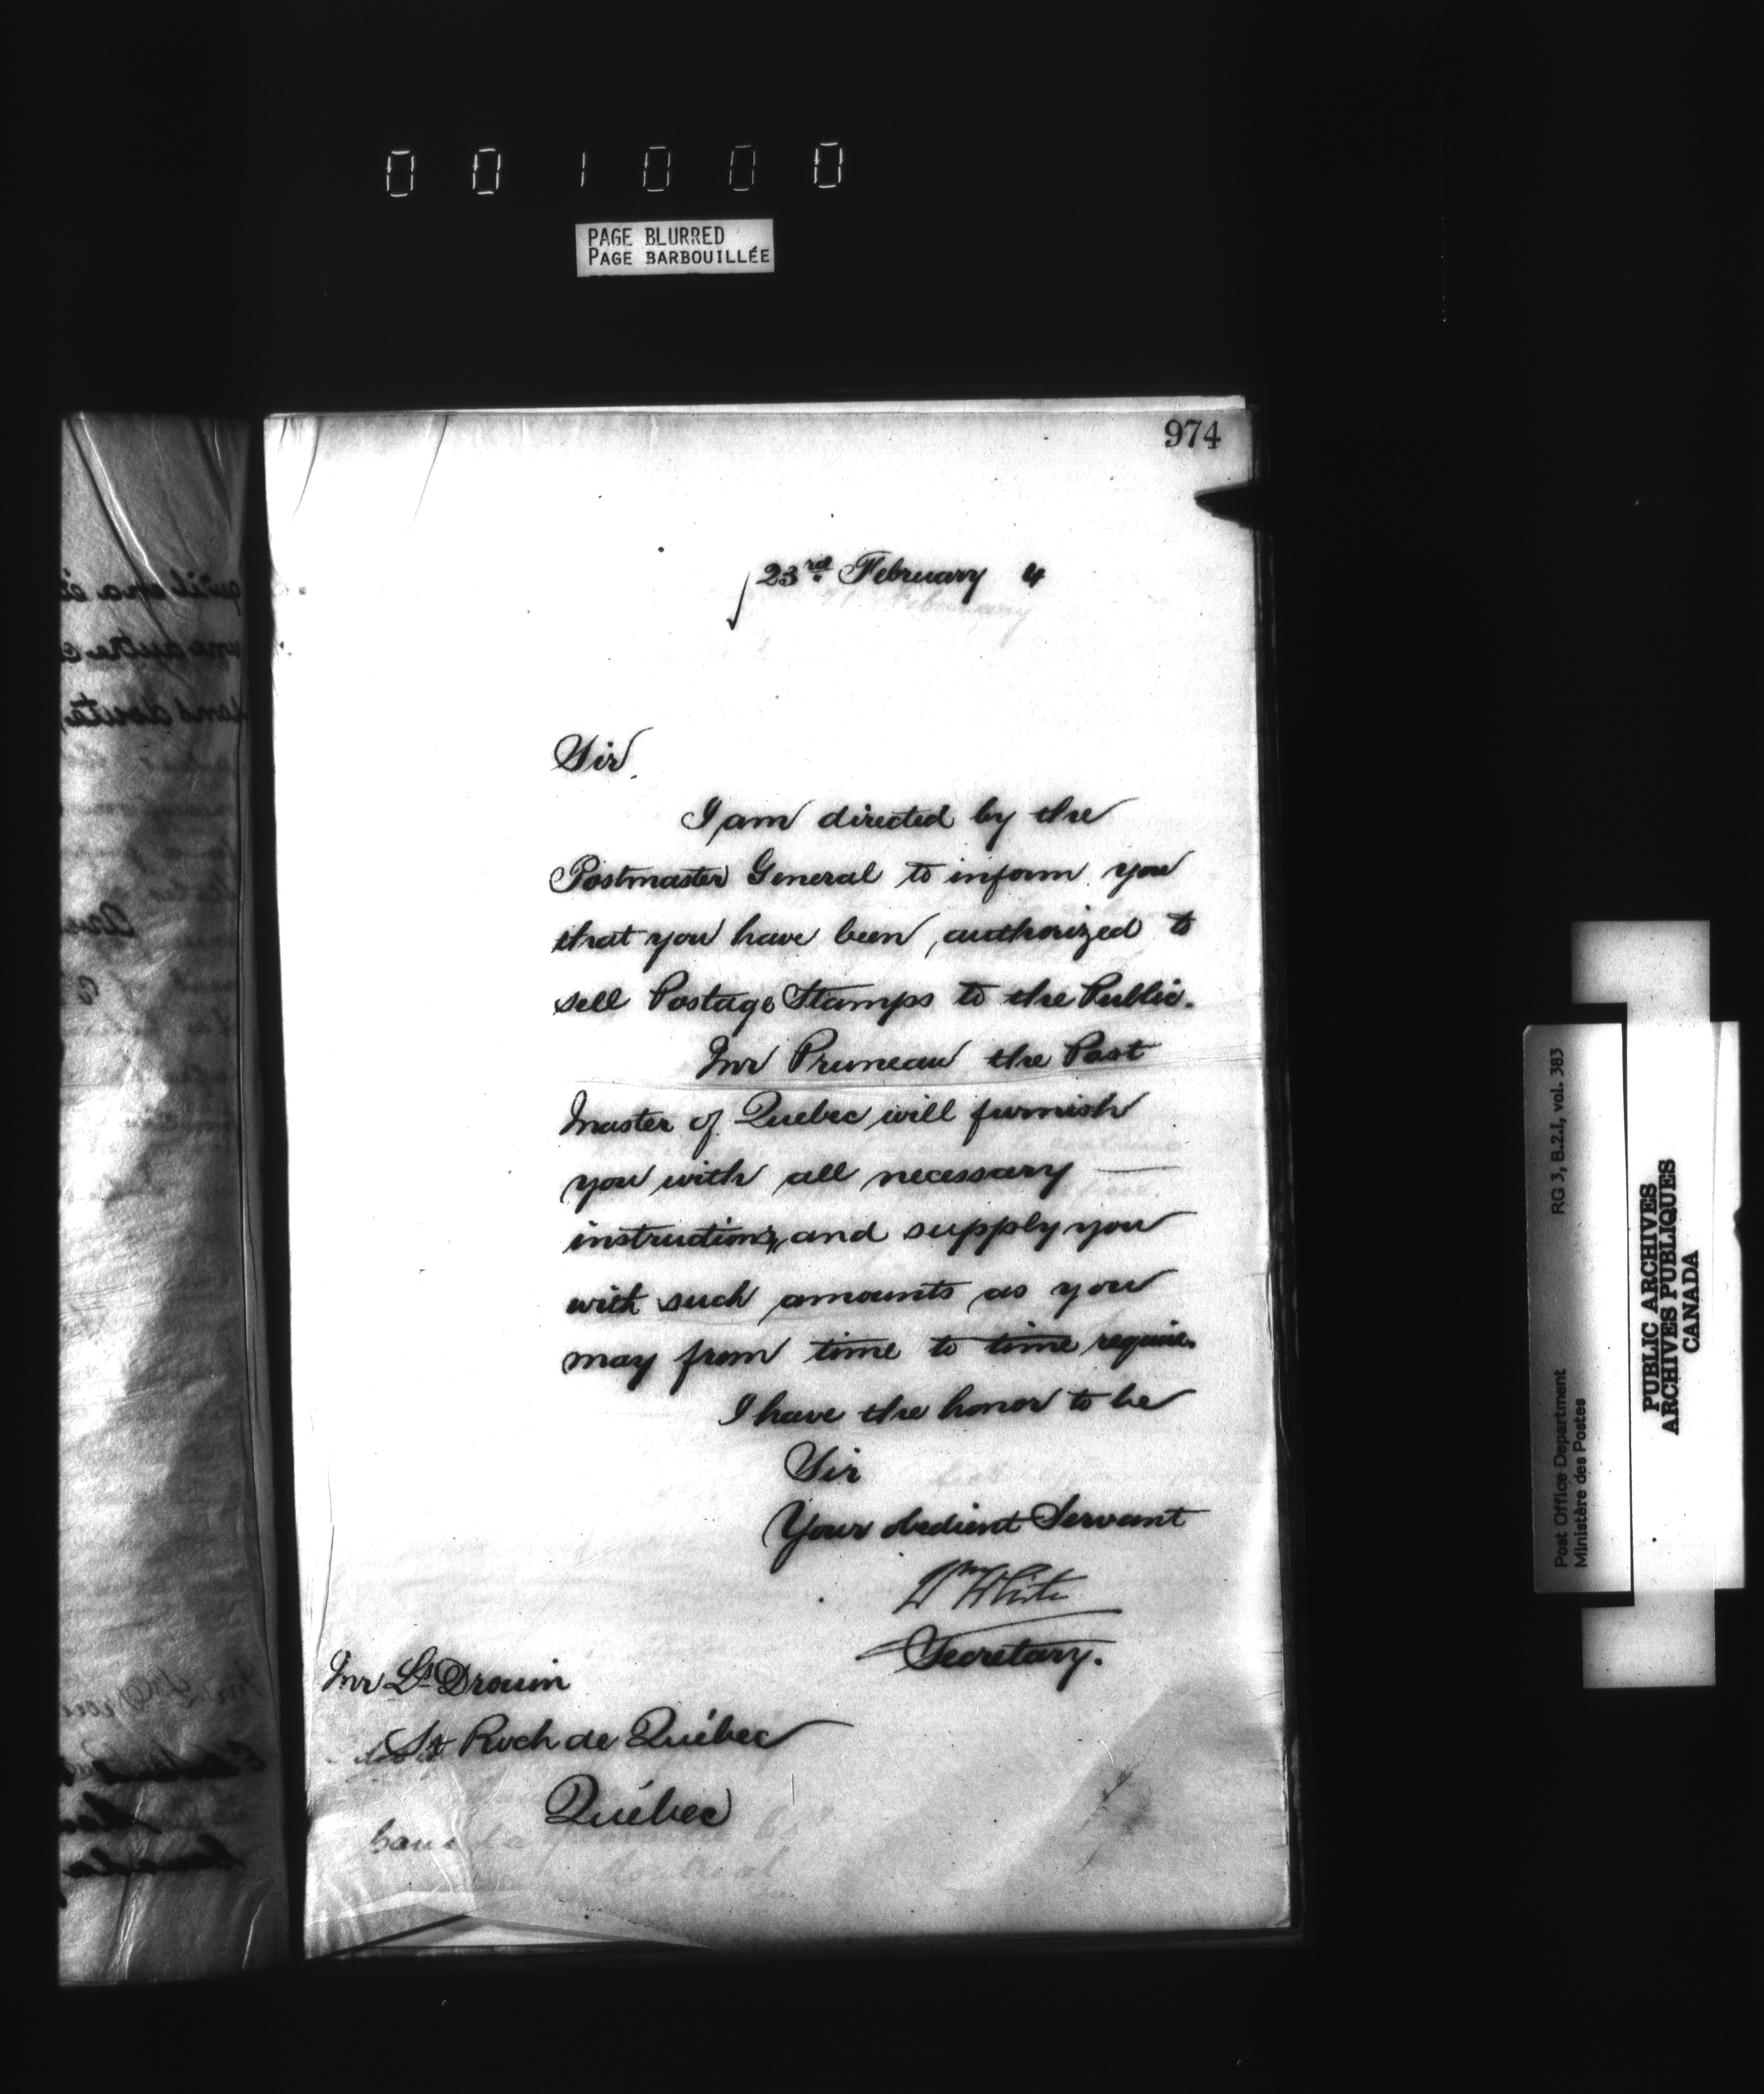 001000
PAGE BLURRED
PAGE BARBOUILLÉE
974
23rd February 4
Sir
I am directed by the
Postmaster General to inform you
that you have been authorized to
sell Postage Stamps to the Public.
Mr Pruneau the Post
Master of Quebec will furnish
you with all necessary
instructions, and supply you
with such amounts as you
may from time to time require.
I have the honor to be
Sir
Your obedient Servant
Wm White
Secretary.
Mr Ls Drouin
St Roch de Québec
Québec
RG 3, B.2.I, vol. 383
Post Office Department
Ministère des Postes
PUBLIC ARCHIVES
ARCHIVES PUBLIQUES
CANADA